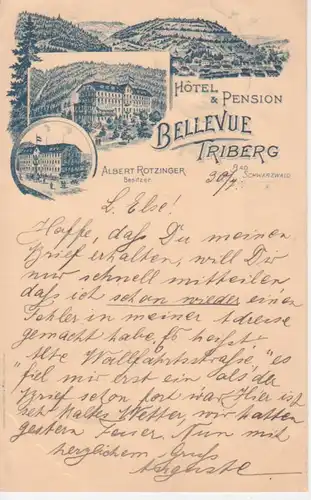 HÔTEL
& PENSION
BELLEVUE
TRIBERG
BAD. SCHWARZWALD
ALBERT ROTZINGER
Besitzer
30/
L. Else!
Hoffe, daß Du meinen
Brief erhalten, will Dir
nur schnell mitteilen
daß ich schon wieder einen
Fehler in meiner Adresse
gemacht habe. Es heißt:
"Alte Wallfahrtsstraße," es
fiel mir erst ein als der
Brief schon fort war. Hier ist
kaltes Wetter, wir hatten
gestern Feuer. Nun mit
herzlichem Gruß
Auguste